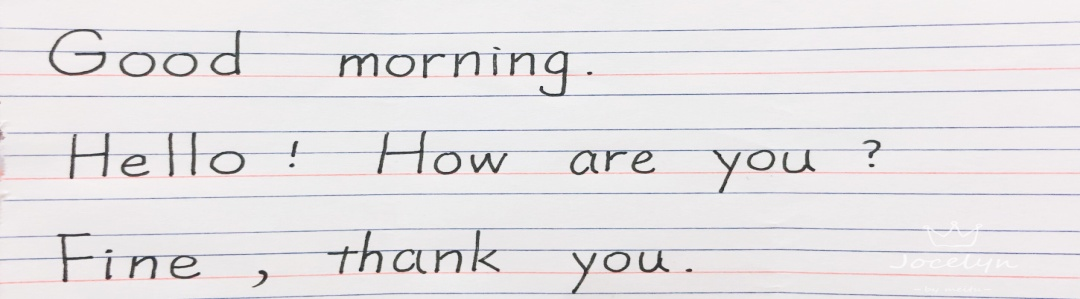 Good morning.
Hello! How are you?
Fine, thank you.
Jocelyn